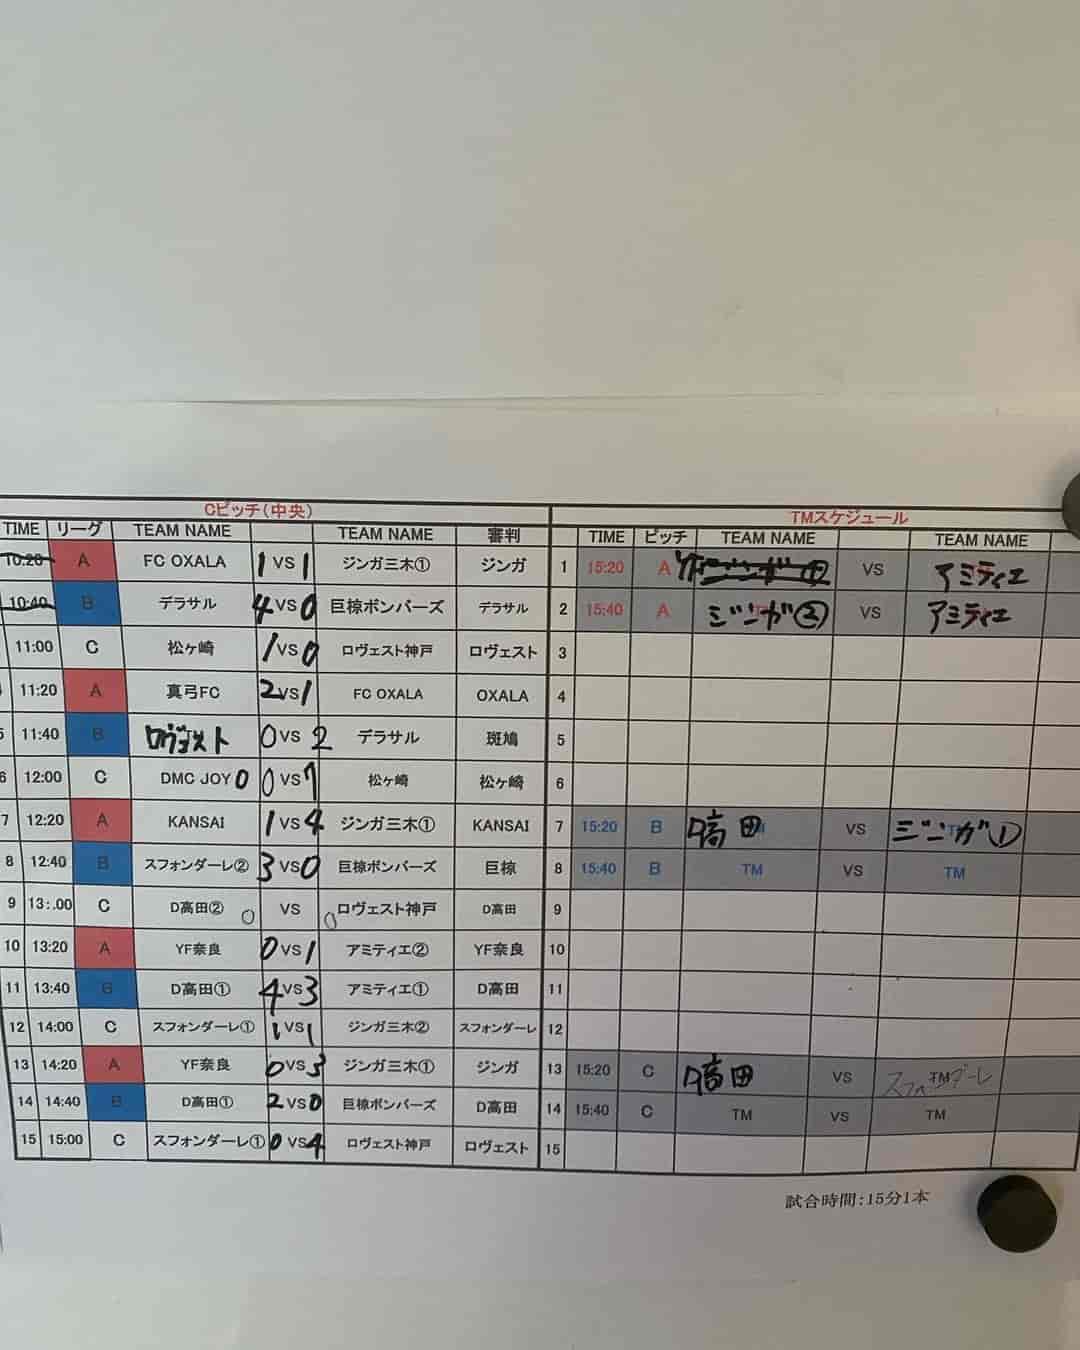 Cピッチ（中央） TMスケジュール
TIME リーグ TEAM NAME TEAM NAME 審判 TIME ピッチ TEAM NAME TEAM NAME
10:20 A FC OXALA 1 VS 1 ジンガ三木① ジンガ 1 15:20 A VS アミティエ
10:40 B デラサル 4 VS 0 巨椋ボンバーズ デラサル 2 15:40 A ジンガ② VS アミティエ
11:00 C 松ヶ崎 1 VS 0 ロヴェスト神戸 ロヴェスト 3
11:20 A 真弓FC 2 VS 1 FC OXALA OXALA 4
5 11:40 B ロヴェスト 0 VS 2 デラサル 斑鳩 5
6 12:00 C DMC JOY 0 0 VS 7 松ヶ崎 松ヶ崎 6
7 12:20 A KANSAI 1 VS 4 ジンガ三木① KANSAI 7 15:20 B D高田 VS ジンガ①
8 12:40 B スフォンダーレ② 3 VS 0 巨椋ボンバーズ 巨椋 8 15:40 B TM VS TM
9 13:.00 C D高田② 0 VS 0 ロヴェスト神戸 D高田 9
10 13:20 A YF奈良 0 VS 1 アミティエ② YF奈良 10
11 13:40 B D高田① 4 VS 3 アミティエ① D高田 11
12 14:00 C スフォンダーレ① 1 VS 1 ジンガ三木② スフォンダーレ 12
13 14:20 A YF奈良 0 VS 3 ジンガ三木① ジンガ 13 15:20 C D高田 VS TM
14 14:40 B D高田① 2 VS 0 巨椋ボンバーズ D高田 14 15:40 C TM VS TM
15 15:00 C スフォンダーレ① 0 VS 4 ロヴェスト神戸 ロヴェスト 15
試合時間：15分1本